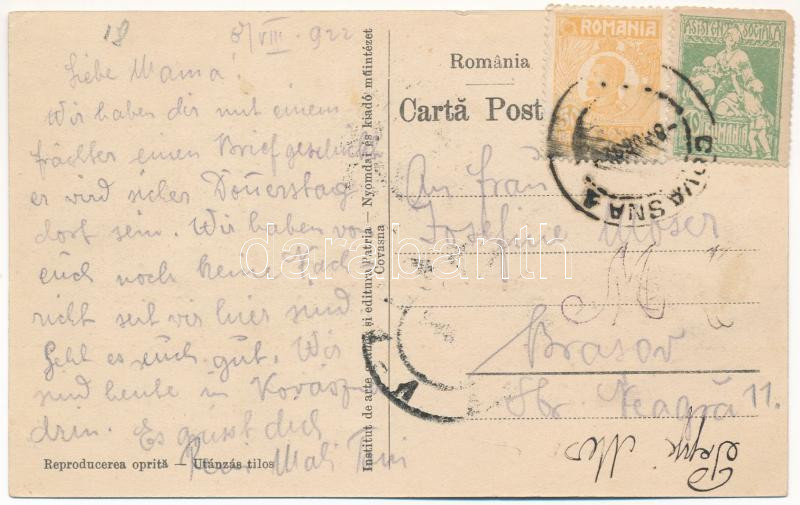 18
8/VIII - 922
Liebe Mama!
Wir haben dir mit einem
frächter einen Brief geschickt
er wird sicher Donerstag
dort sein. Wir haben von
euch noch keine Nach
richt seit wir hier sind
Gehl es euch gut. Wir
sind heute in Kovasz
drin. Es grüsst dich
Mali
Reproducerea oprită — Utánzás tilos
Institut de arte grafice și editura Patria — Nyomdai és kiadó műintézet
Covasna
România
Cartă Post
ROMANIA
ASISTENȚA SOCIALA
10 ROMANIA
COVASNA
An frau
Josefine Moser
M
Brasov
Str. Neagră 11.
darabanth